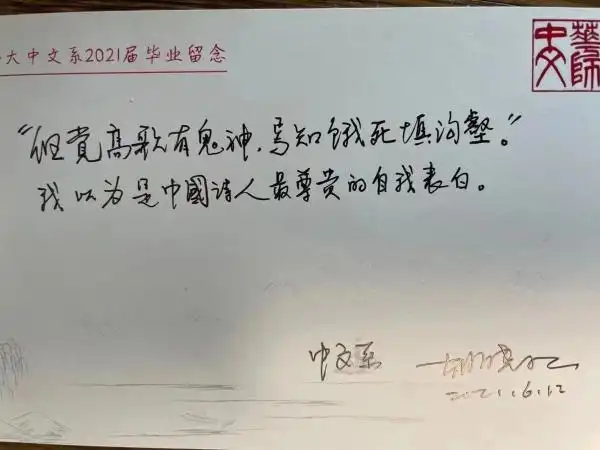 大中文系2021届毕业留念
華師
中文
“但觉高歌有鬼神，焉知饿死填沟壑。”
我以为是中國诗人最尊贵的自我表白。
中文系 胡晓明
2021.6.12